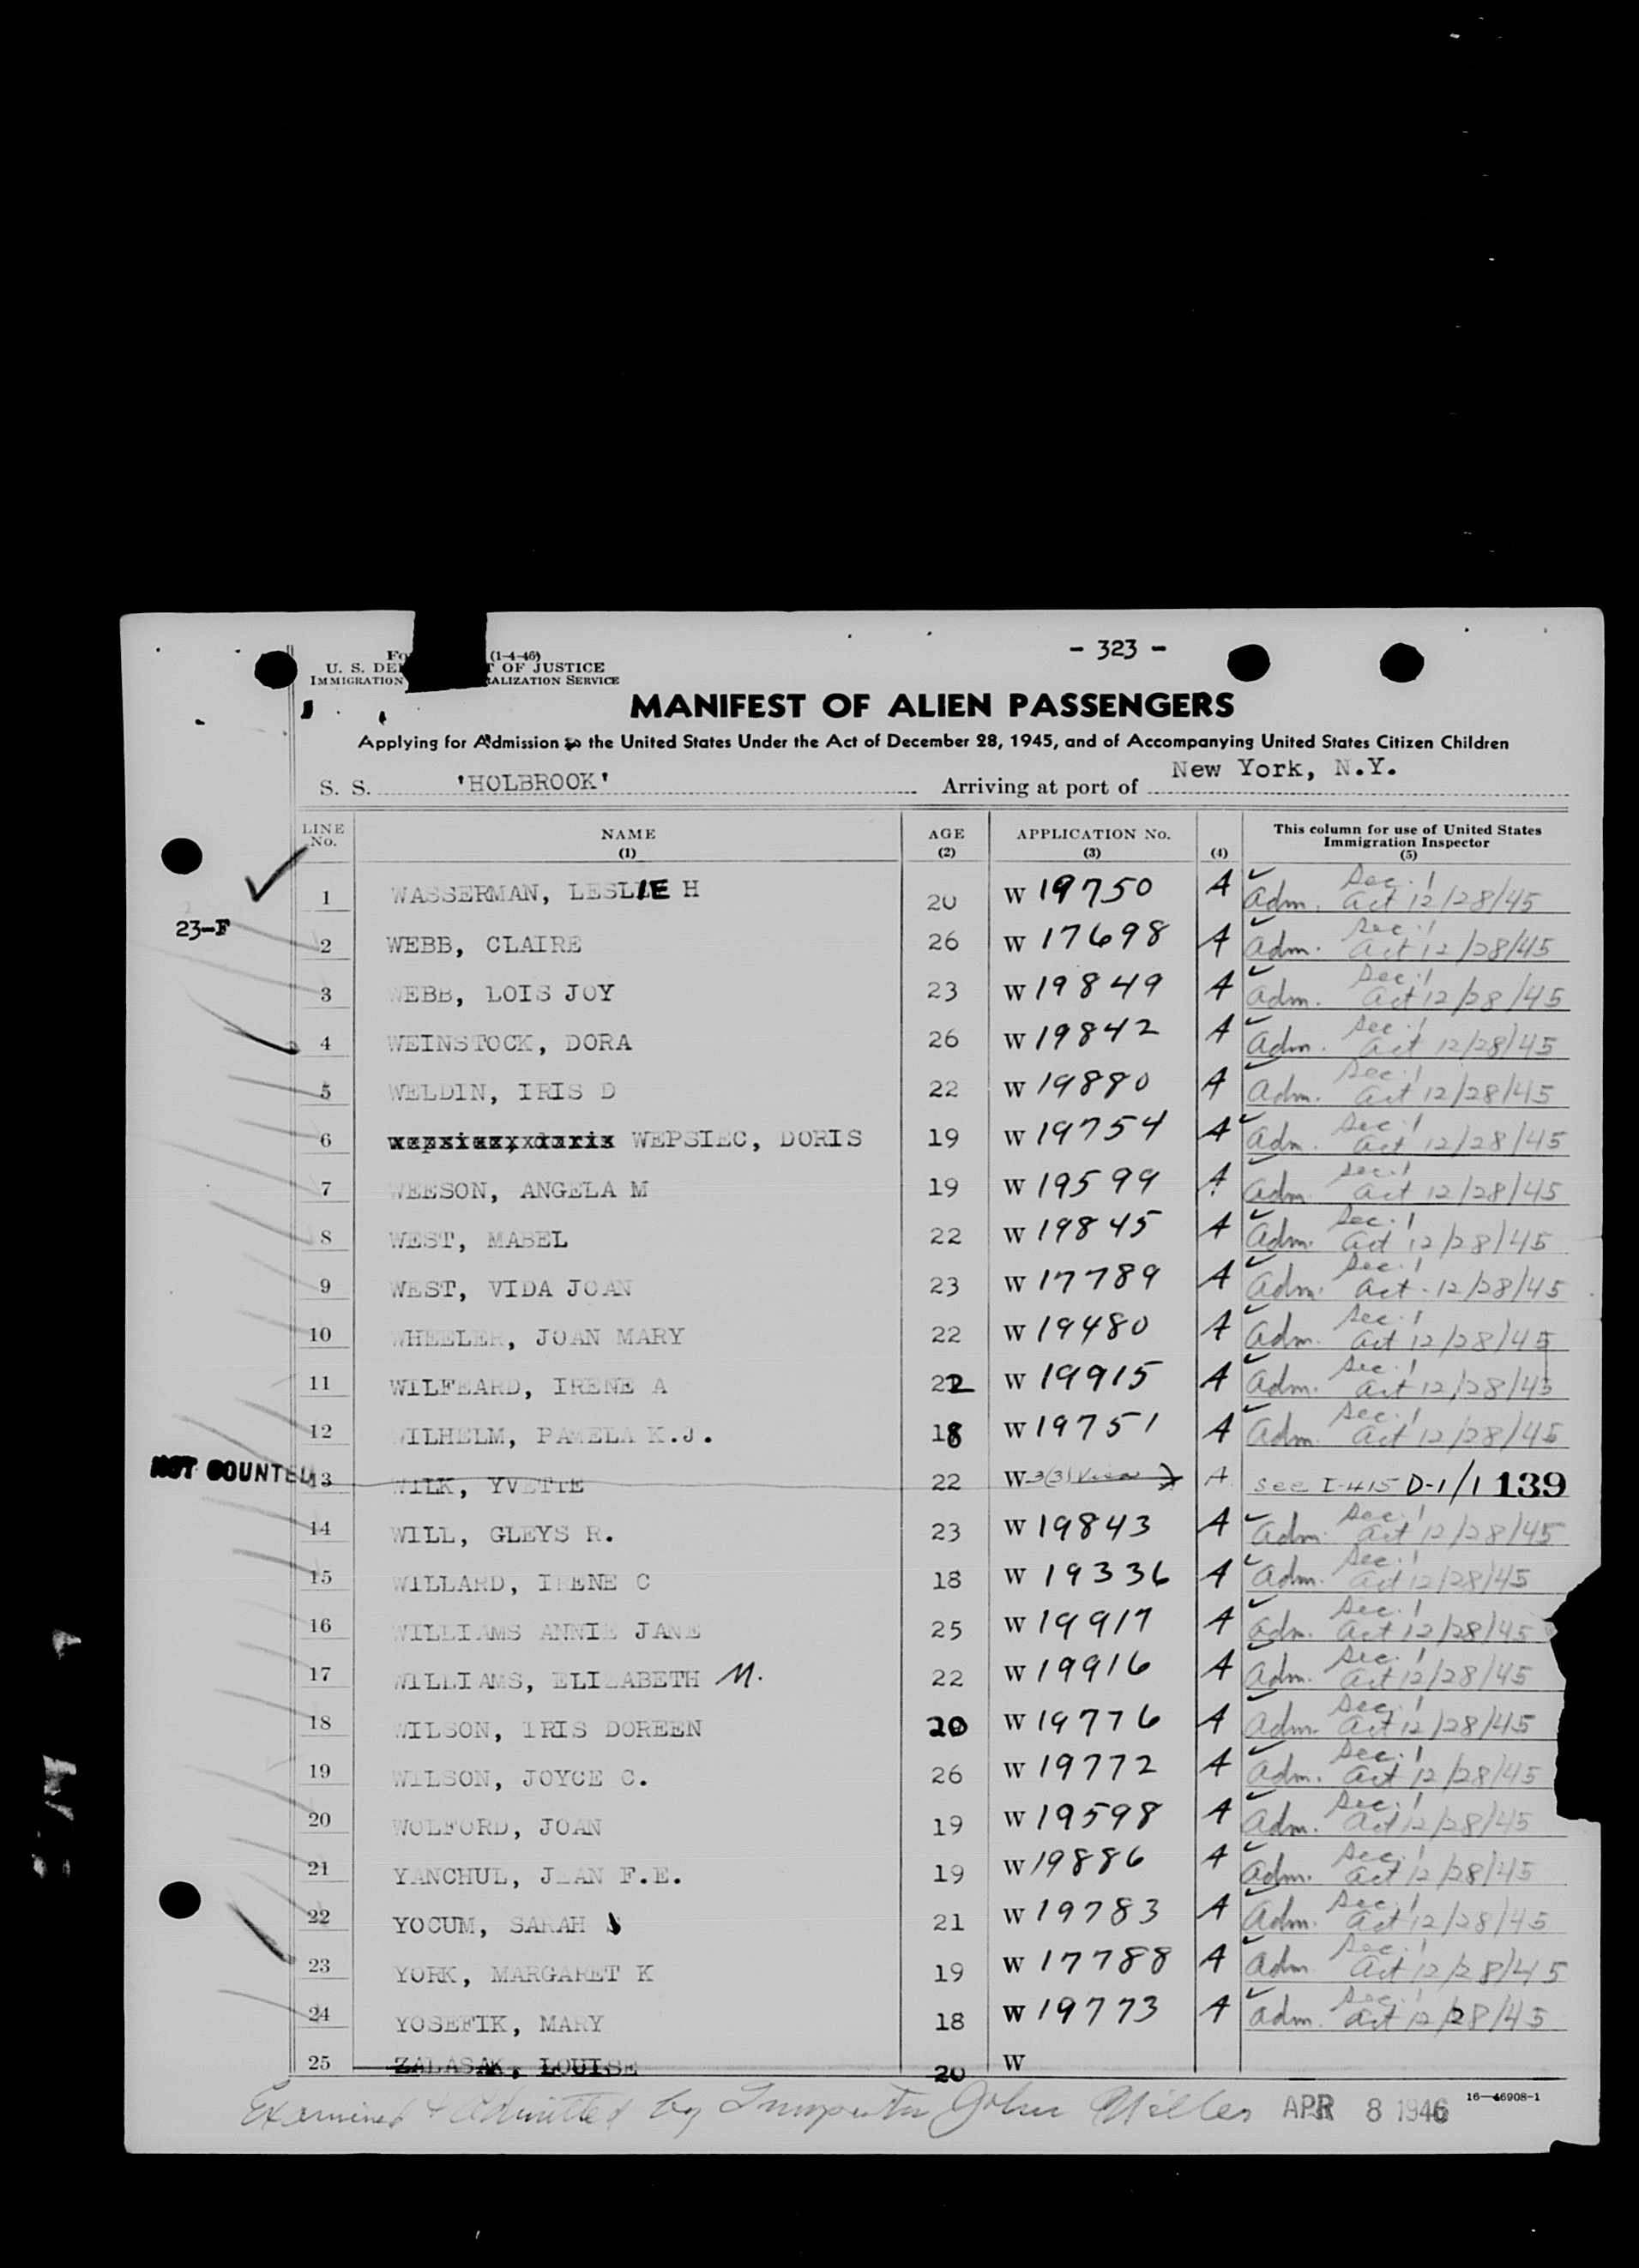 (1-4-46)
- 323 -
U. S. DE T OF JUSTICE
IMMIGRATION ALIZATION SERVICE
MANIFEST OF ALIEN PASSENGERS
Applying for Admission to the United States Under the Act of December 28, 1945, and of Accompanying United States Citizen Children
S. S. 'HOLBROOK' Arriving at port of New York, N.Y.
LINE No. NAME (1) AGE (2) APPLICATION No. (3) (4) This column for use of United States Immigration Inspector (5)
1 WASSERMAN, LESLIE H 20 W 19750 A Adm. Sec. 1 Act 12/28/45
23-F
2 WEBB, CLAIRE 26 W 17698 A Adm. Sec. 1 Act 12/28/45
3 WEBB, LOIS JOY 23 W 19849 A Adm. Sec. 1 Act 12/28/45
4 WEINSTOCK, DORA 26 W 19842 A Adm. Sec. 1 Act 12/28/45
5 WELDIN, IRIS D 22 W 19880 A Adm. Sec. 1 Act 12/28/45
6 WEPSIEC, DORIS 19 W 19754 A Adm. Sec. 1 Act 12/28/45
7 WEESON, ANGELA M 19 W 19599 A Adm Sec. 1 Act 12/28/45
8 WEST, MABEL 22 W 19845 A Adm. Sec. 1 Act 12/28/45
9 WEST, VIDA JOAN 23 W 17789 A Adm. Sec. 1 Act - 12/28/45
10 WHEELER, JOAN MARY 22 W 19480 A Adm. Sec. 1 Act 12/28/45
11 WILFEARD, IRENE A 22 W 19915 A Adm. Sec. 1 Act 12/28/45
12 WILHELM, PAMELA K.J. 18 W 19751 A Adm. Sec. 1 Act 12/28/45
NOT COUNTED 13 WILK, YVETTE 22 W A see I-415 D-1/1 139
14 WILL, GLEYS R. 23 W 19843 A Adm. Sec. 1 Act 12/28/45
15 WILLARD, IRENE C 18 W 19336 A Adm. Sec. 1 Act 12/28/45
16 WILLIAMS ANNIE JANE 25 W 19917 A Adm. Sec. 1 Act 12/28/45
17 WILLIAMS, ELIZABETH M. 22 W 19916 A Adm. Sec. 1 Act 12/28/45
18 WILSON, IRIS DOREEN 20 W 19776 A Adm. Sec. 1 Act 12/28/45
19 WILSON, JOYCE C. 26 W 19772 A Adm. Sec. 1 Act 12/28/45
20 WOLFORD, JOAN 19 W 19598 A Adm. Sec. 1 Act 12/28/45
21 YANCHUL, JEAN F.E. 19 W 19886 A Adm. Sec. 1 Act 12/28/45
22 YOCUM, SARAH 21 W 19783 A Adm. Sec. 1 Act 12/28/45
23 YORK, MARGARET K 19 W 17788 A Adm Sec. 1 Act 12/28/45
24 YOSEFIK, MARY 18 W 19773 A Adm. Sec. 1 Act 12/28/45
25 ZALASAK, LOUISE 20 W
Examined & Admitted by Inspector John Miller APR 8 1946 16—46908-1